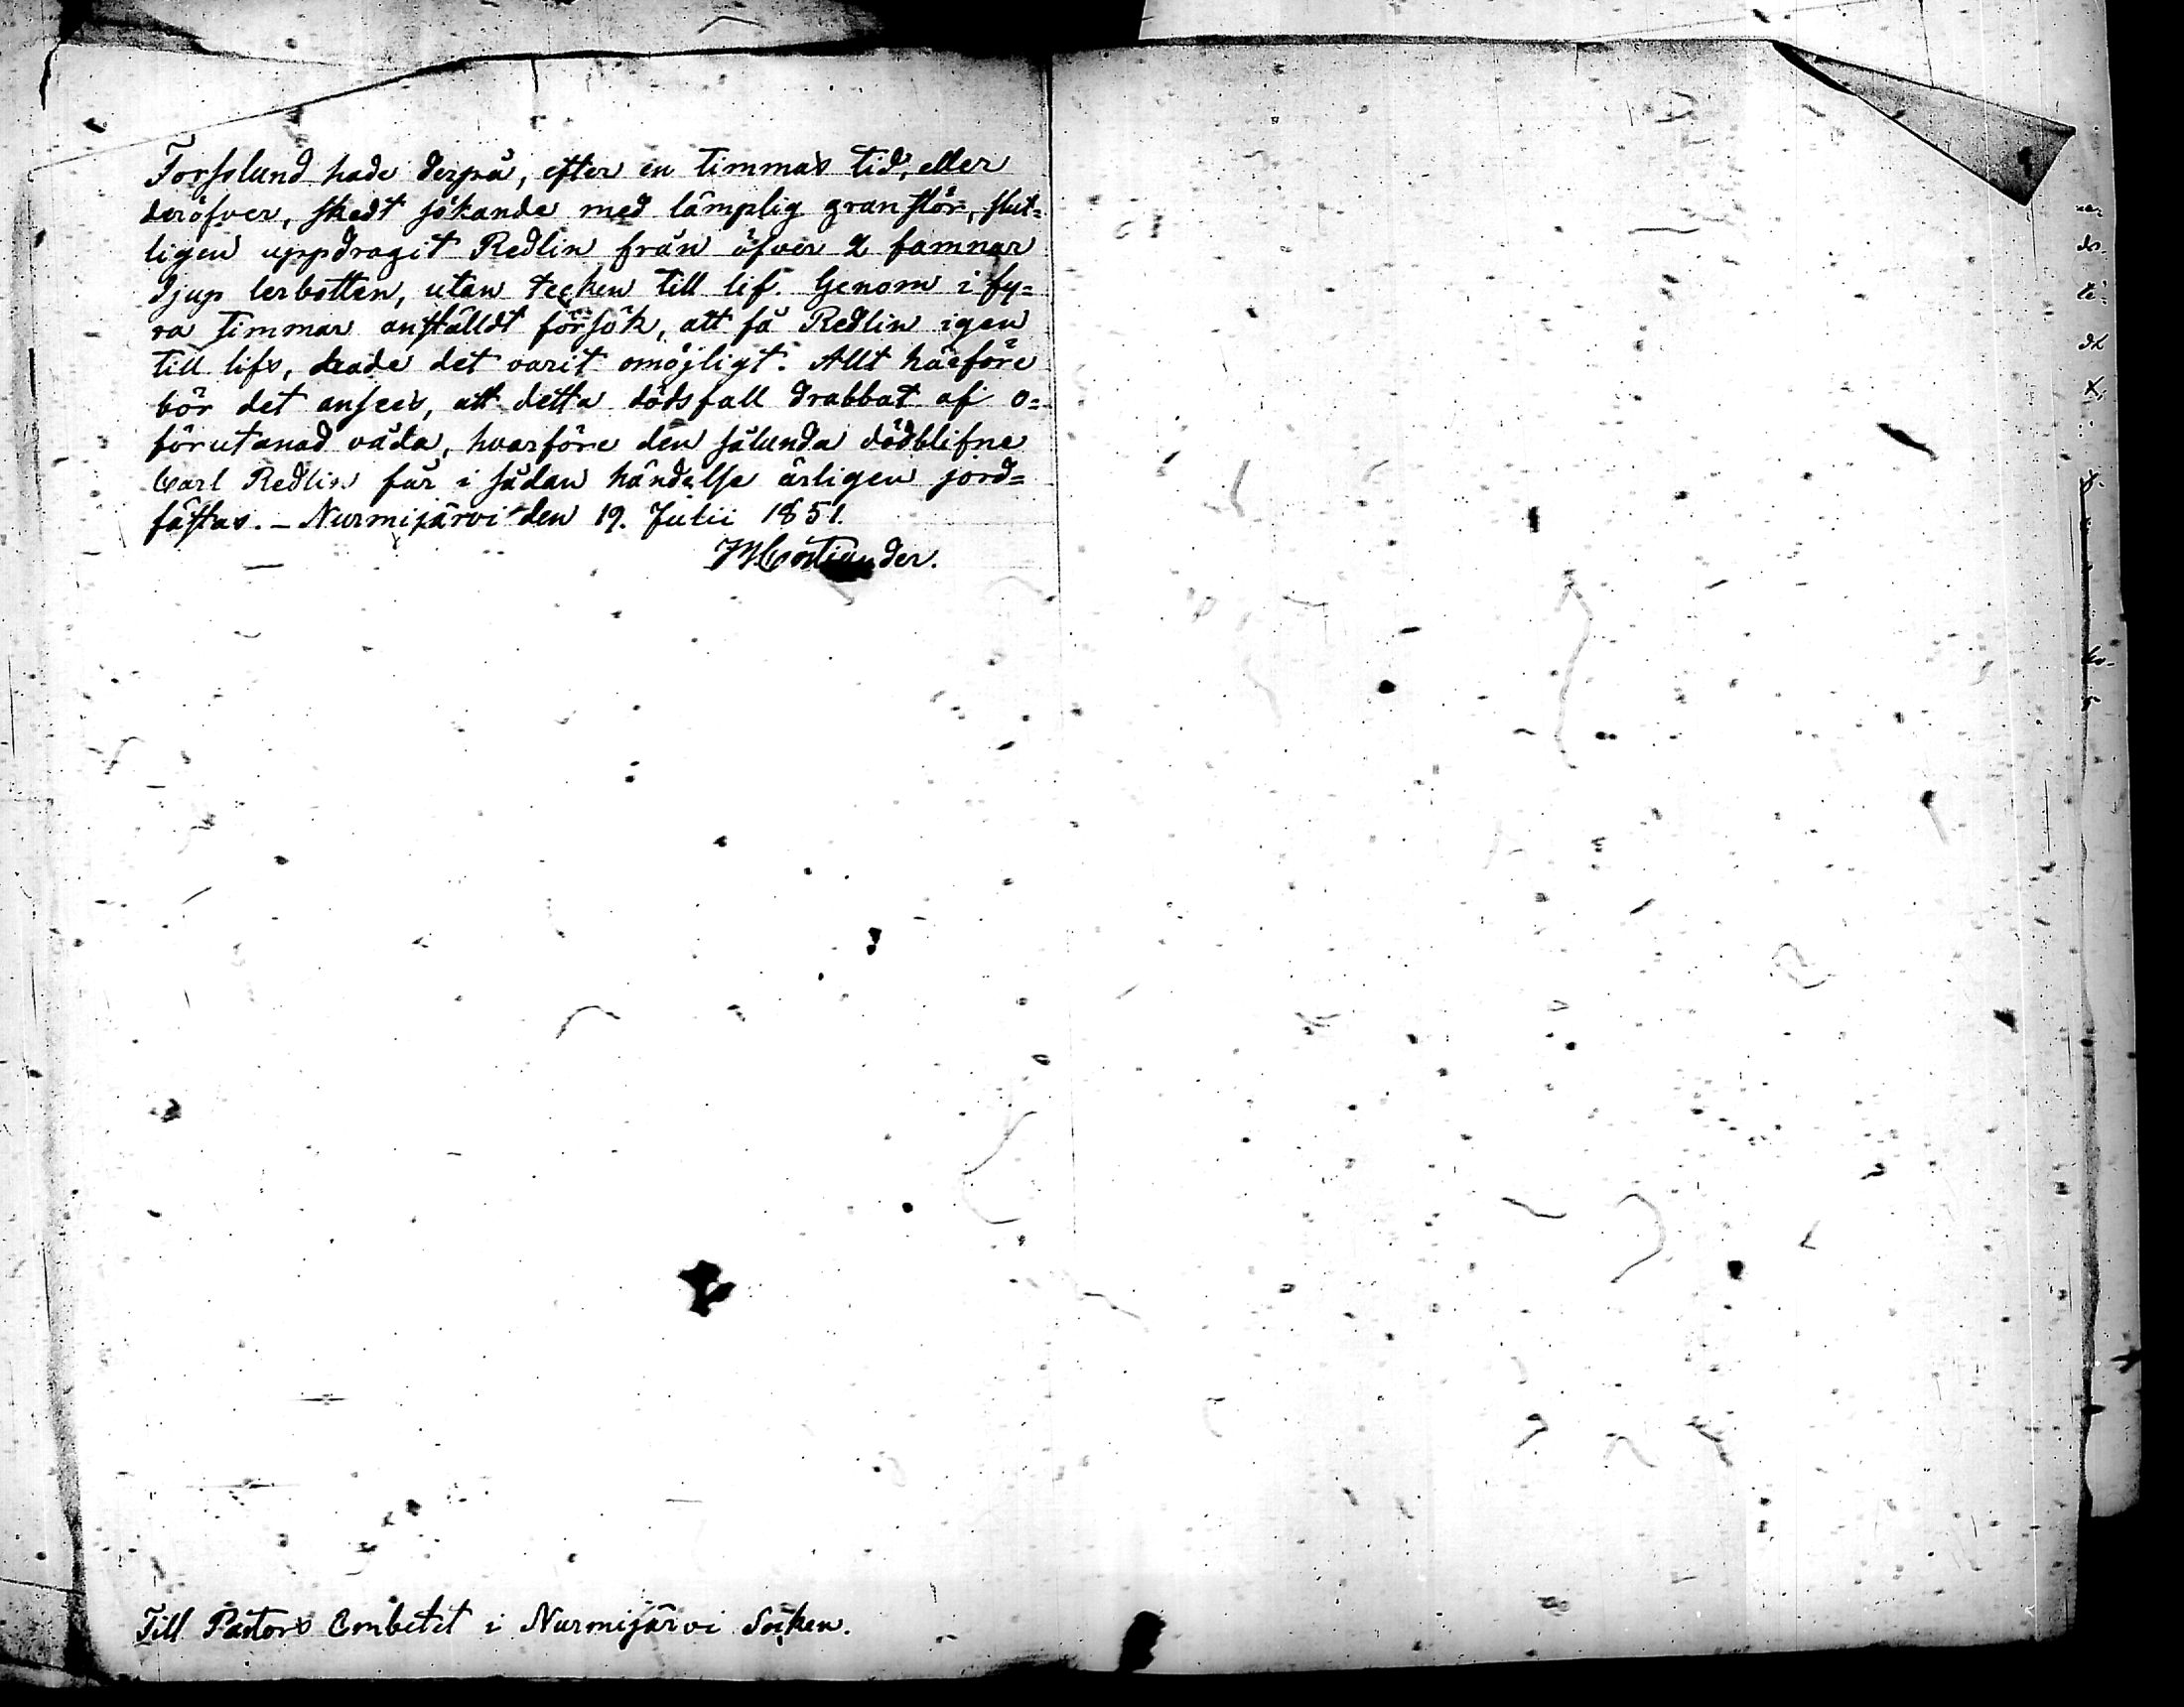 Forsslund hade derpå, efter en timmas tid, eller
deröfver, skedt sökande med lämplig gran stör, slut=
ligen uppdragit Redlin från öfver 2 famnar
djup lerbotten, utan tecken till lif. Genom i fy=
ra timmar anställdt försök, att få Redlin igen
till lifs, hade det varit omöjligt. Allt härföre
bör det anses, att detta dödsfall drabbat af o=
förutanad våda, hvarföre den sålunda dödblifne
Carl Redlin får i sådan händelse ärligen jord=
fästas. – Nurmijärvi den 19. Julii 1851.
Costiander.
Till Pastors Embetet i Nurmijärvi Socken.